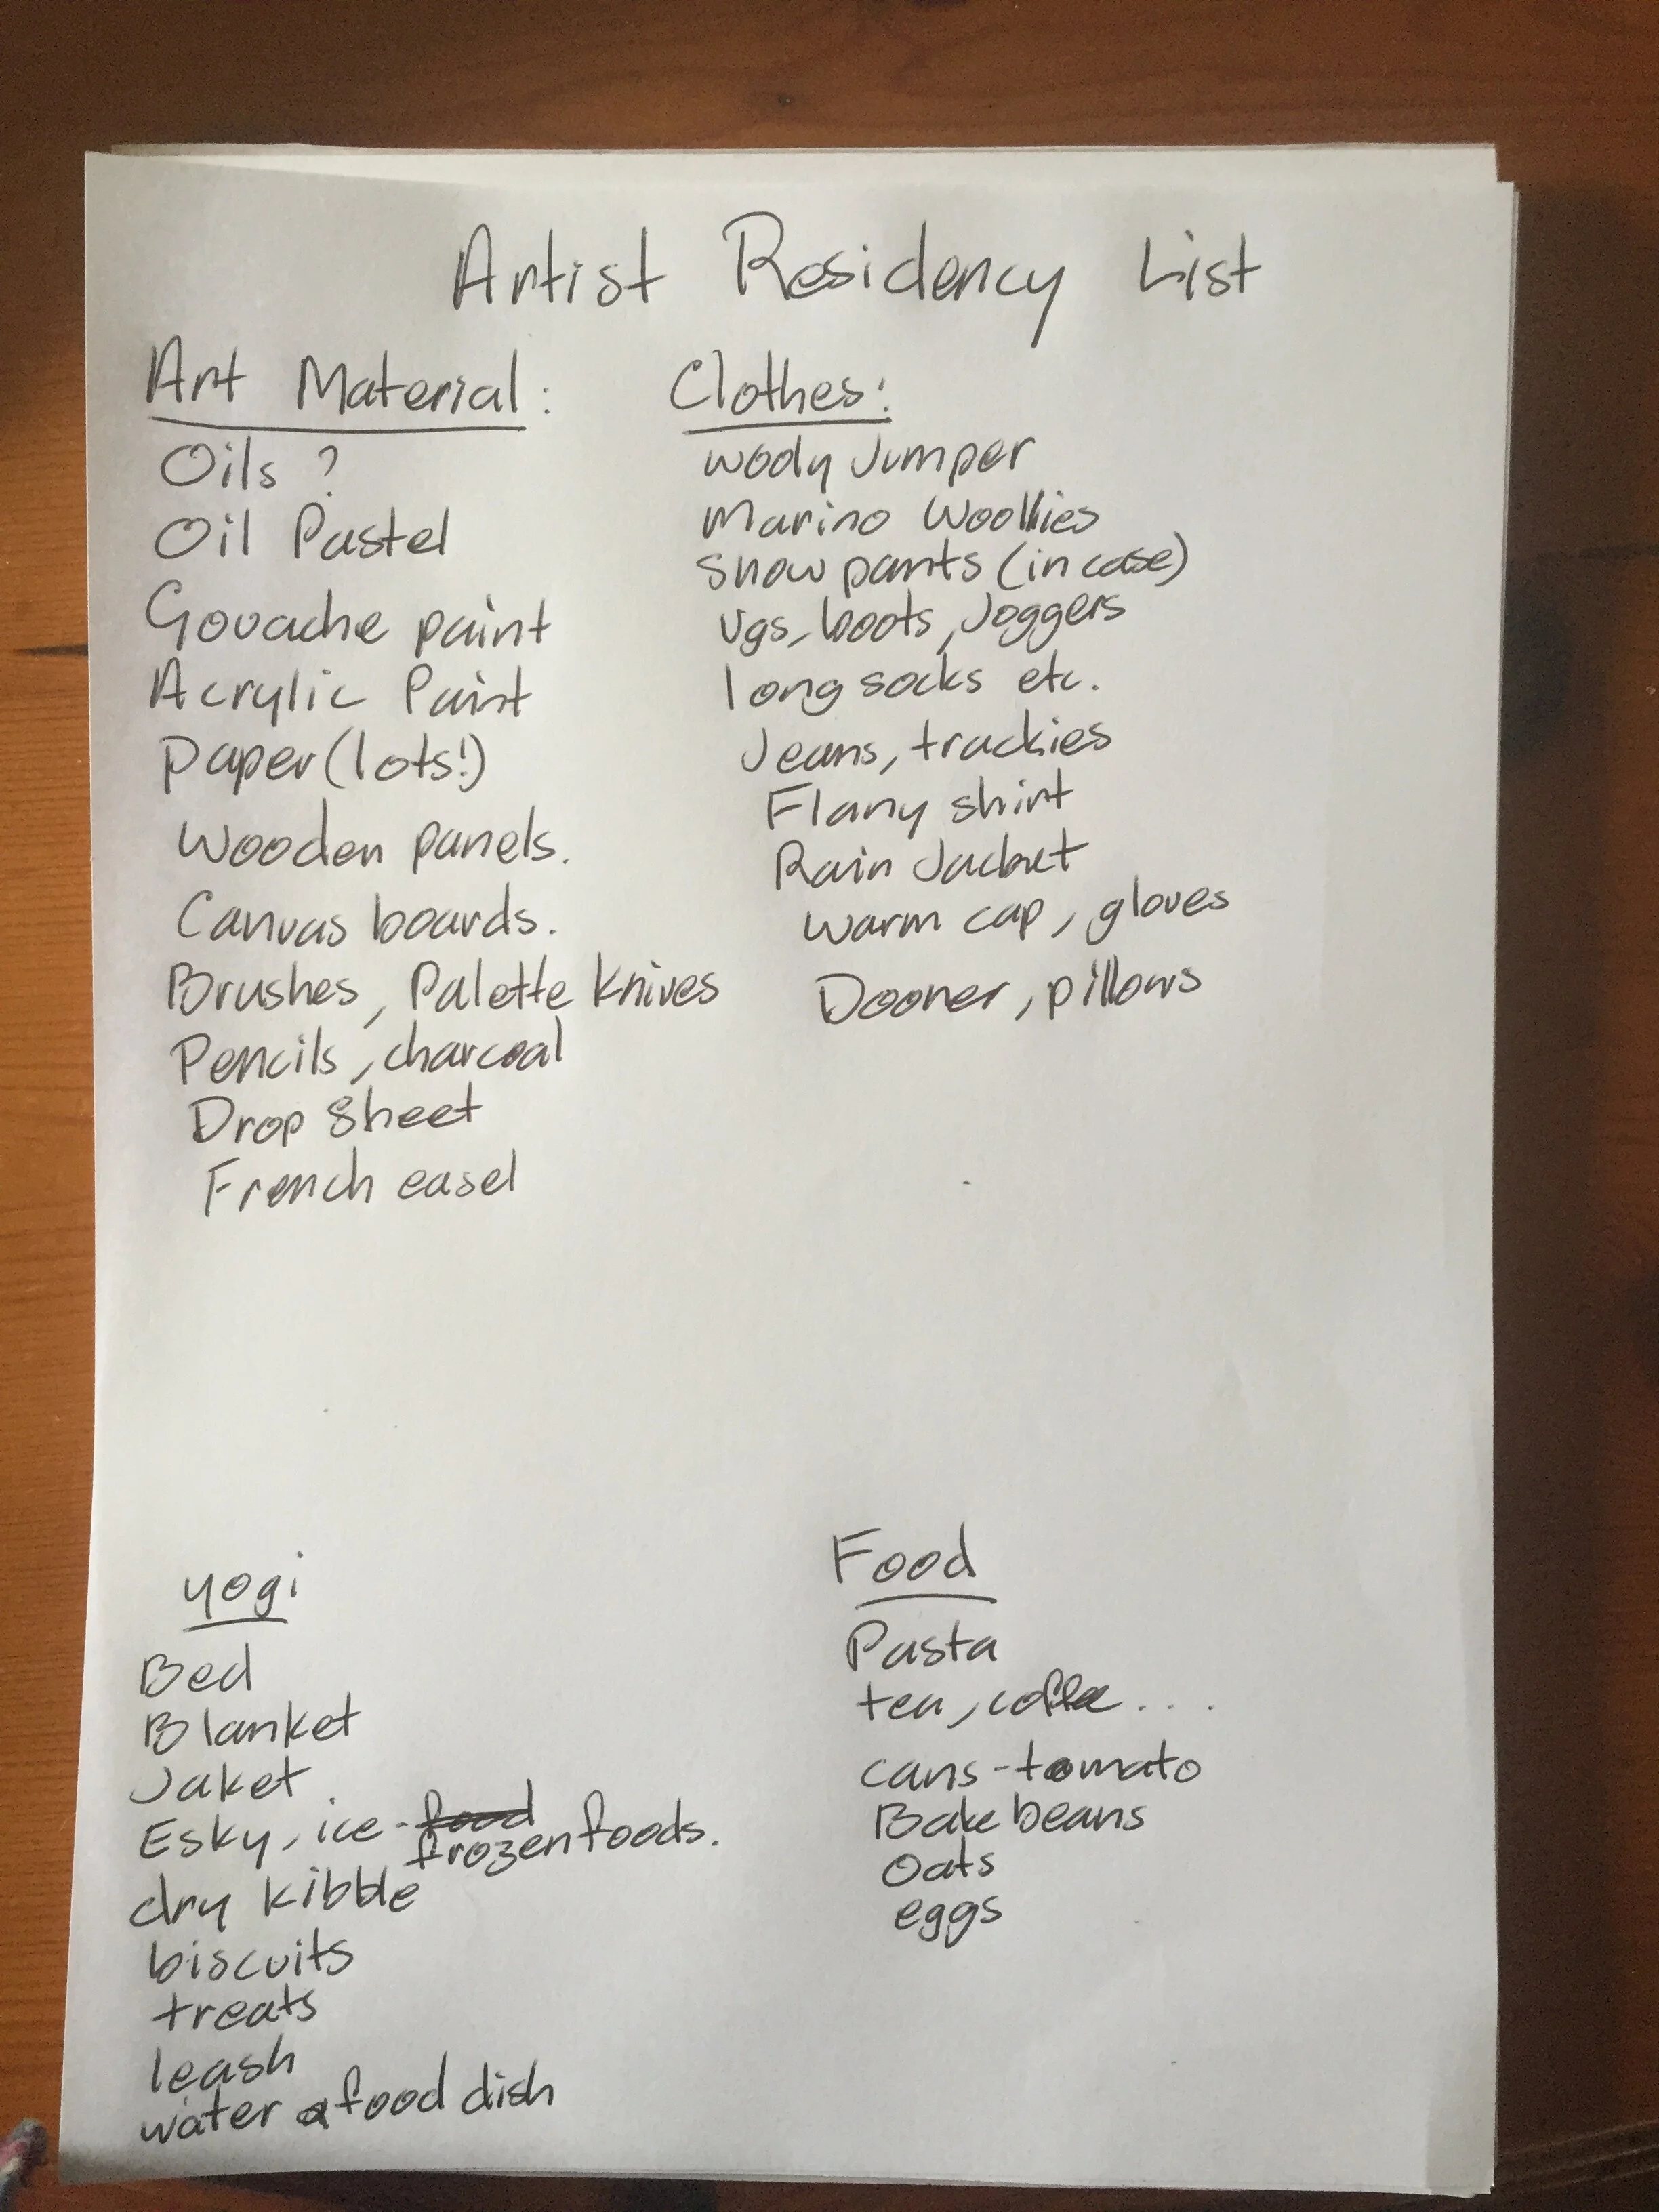 Artist Residency List
Art Material:
Oils ?
Oil Pastel
Gouache paint
Acrylic Paint
Paper (lots!)
Wooden panels.
Canvas boards.
Brushes, Palette knives
Pencils, charcoal
Drop Sheet
French easel
Clothes:
wooly Jumper
Marino Woollies
Snow pants (in case)
Ugs, boots, Joggers
long socks etc.
Jeans, trackies
Flany shirt
Rain Jacket
warm cap, gloves
Dooner, pillows
yogi
Bed
Blanket
Jaket.
Esky, ice - food
frozen foods.
dry kibble
biscuits
treats
leash
water & food dish
Food
Pasta
tea, coffee....
cans - tomato
Bake beans
Oats
eggs